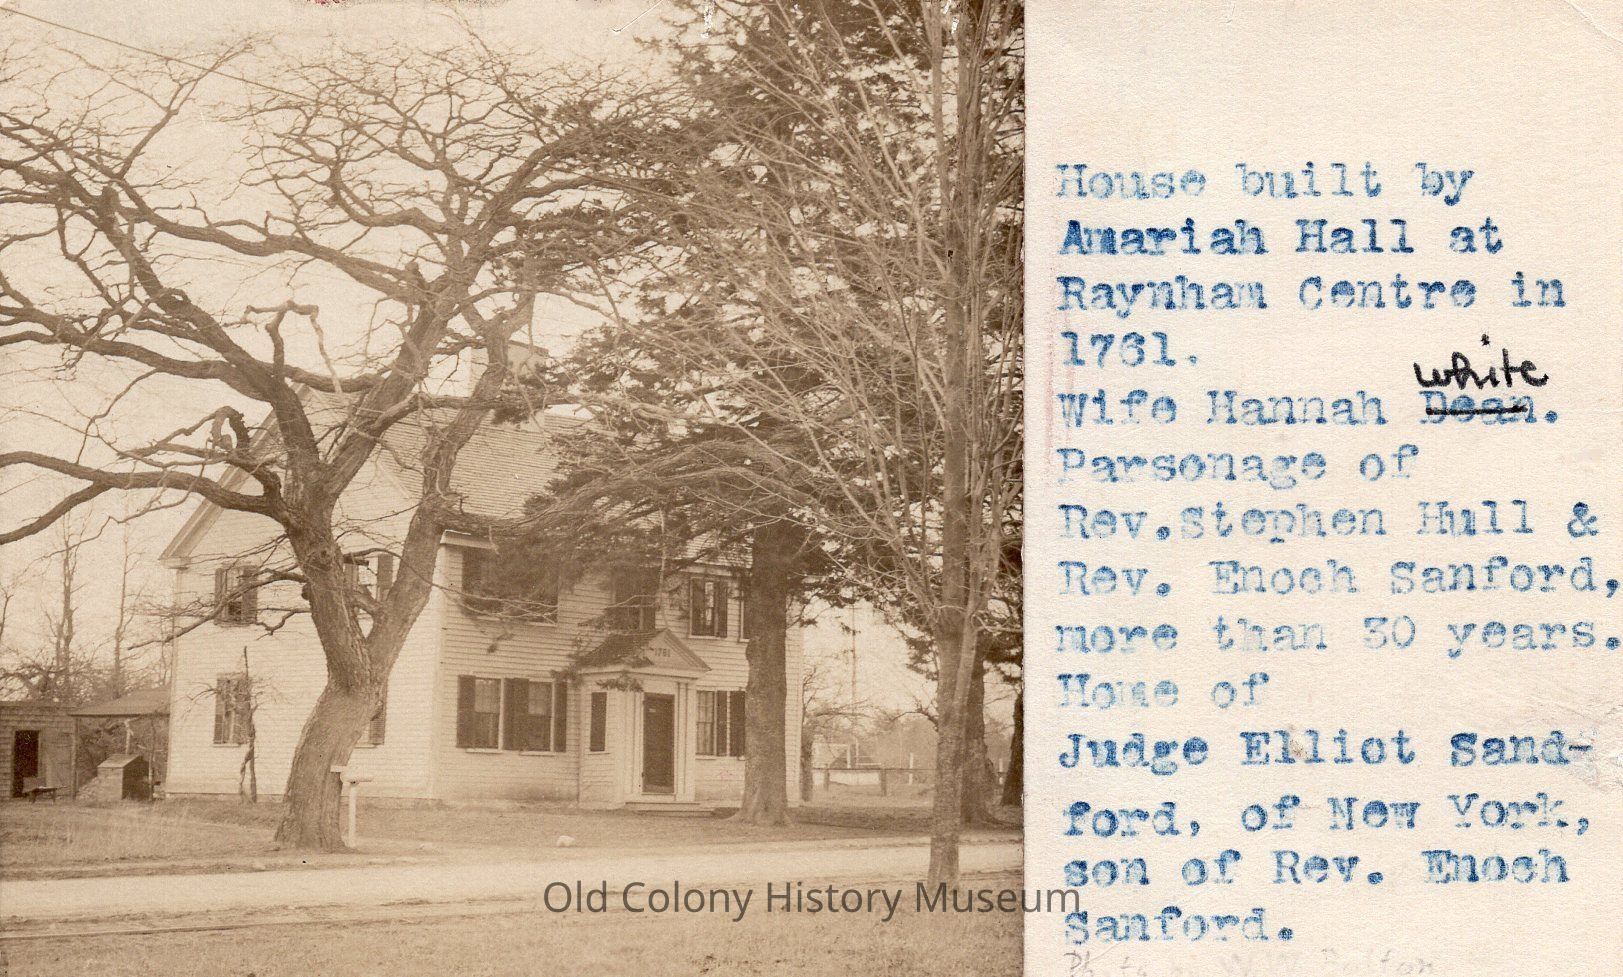 1761
House built by
Amariah Hall at
Raynham Centre in
1761.
white
Wife Hannah Dean.
Parsonage of
Rev.Stephen Hull &
Rev. Enoch Sanford,
more than 30 years.
Home of
Judge Elliot Sand-
ford, of New York,
son of Rev. Enoch
Sanford.
Photo
Old Colony History Museum